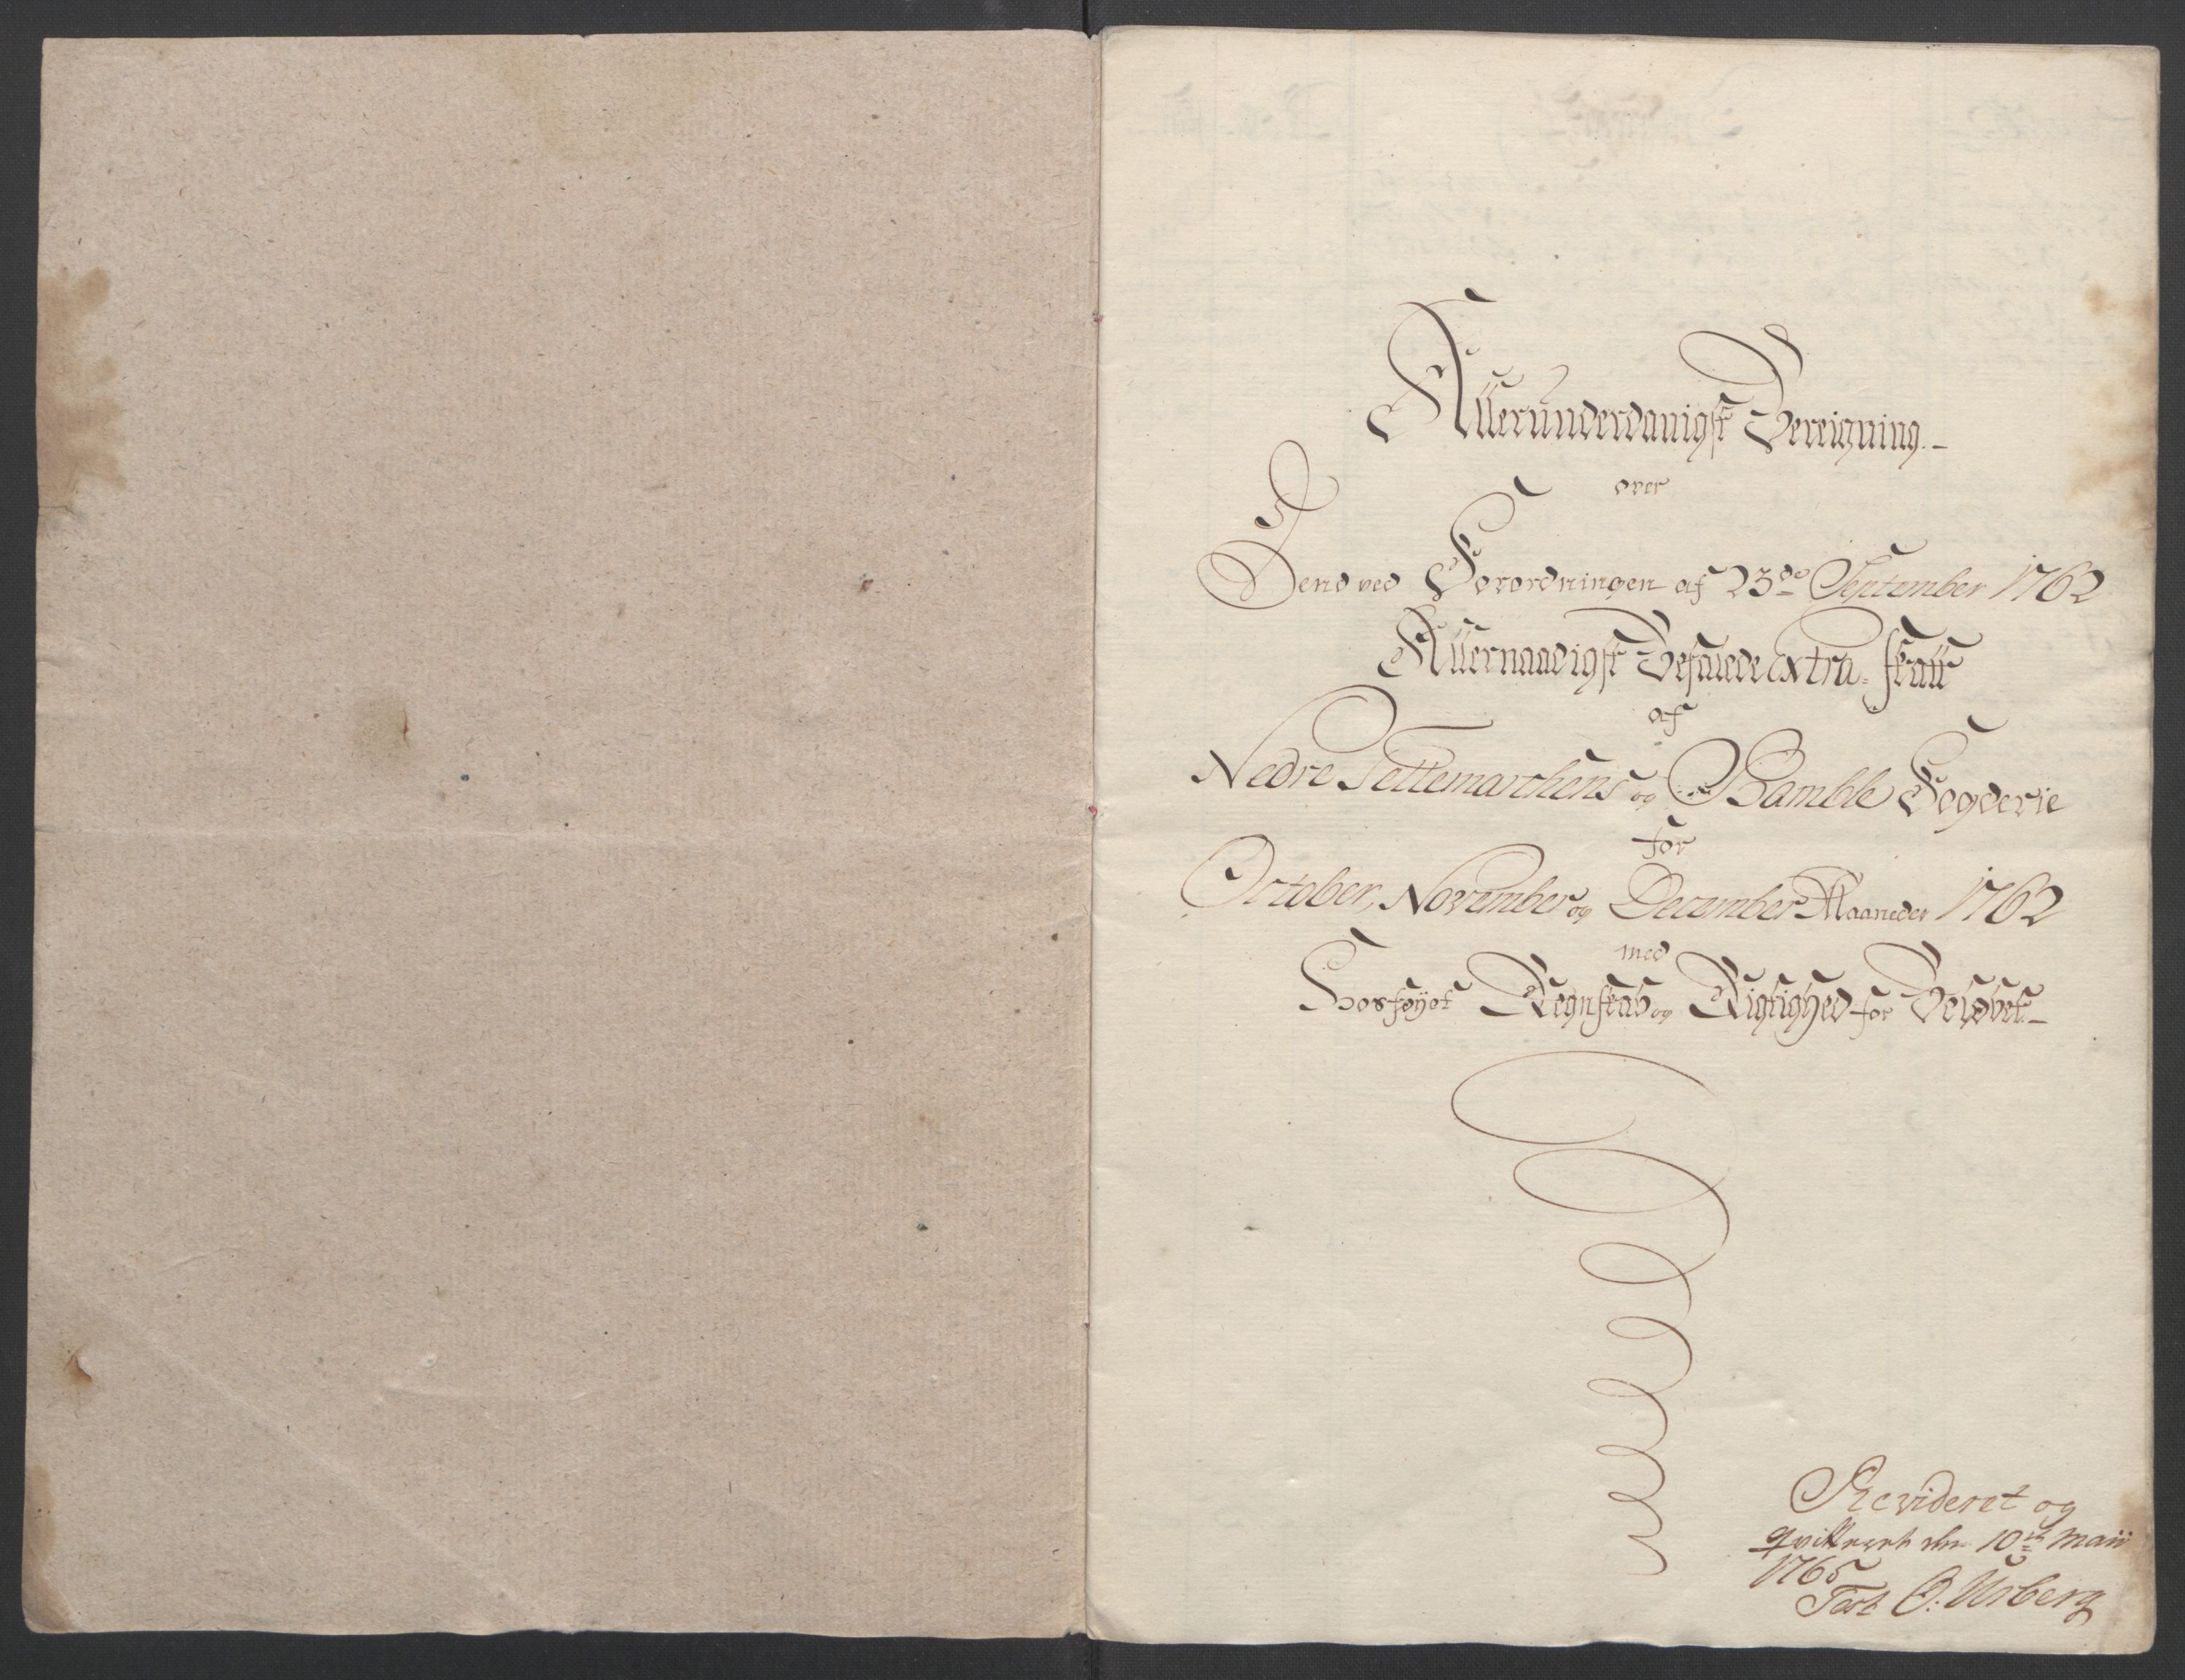 Allerunderdanigst Bereigning.
over
Dend ved Forordningen af 23de September 1762
Allernaadigst Befalede Extra-Skatt
af
Nedre Tellemarchens og Bamble Fogderie
for
October, November og December Maaneder 1762
med
Hosføyet Regnskab og Rigtighed for Beløbet
Revideret og
qvitteret den 10de Maii
1765
Test O: Urberg